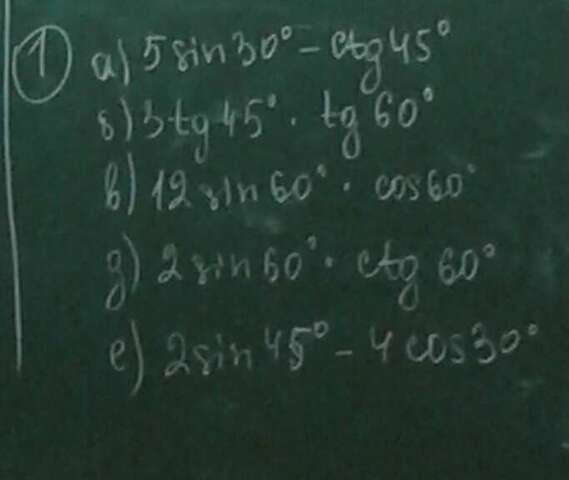 1 а) 5 sin 30° - ctg 45°
б) 3 tg 45° · tg 60°
в) 12 sin 60° · cos 60°
д) 2 sin 60° · ctg 60°
е) 2 sin 45° - 4 cos 30°